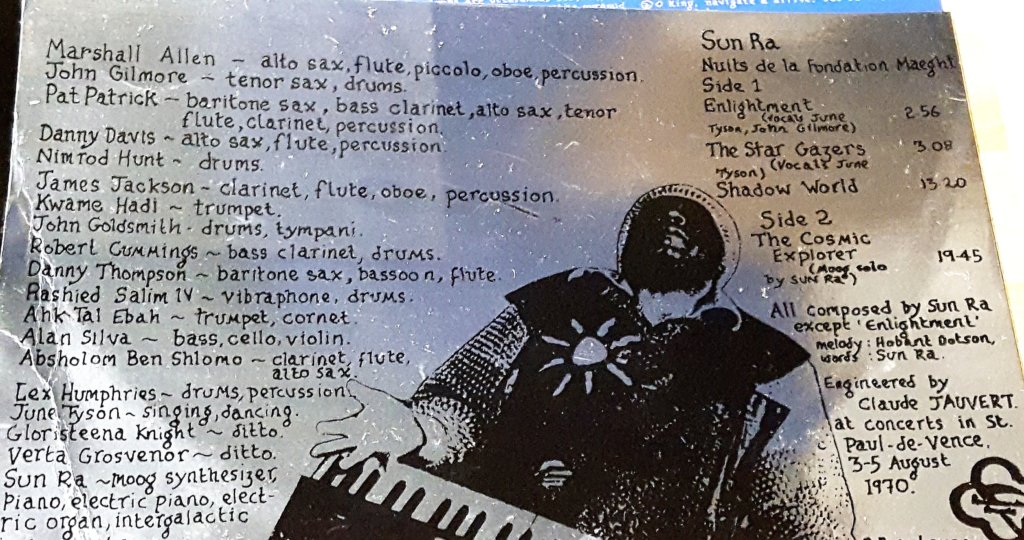 O King, navigate a
Marshall Allen ~ alto sax, flute, piccolo, oboe, percussion.
John Gilmore ~ tenor sax, drums.
Pat Patrick ~ baritone sax, bass clarinet, alto sax, tenor
flute, clarinet, percussion.
Danny Davis ~ alto sax, flute, percussion.
Nimrod Hunt ~ drums.
James Jackson ~ clarinet, flute, oboe, percussion.
Kwame Hadi ~ trumpet.
John Goldsmith - drums, tympani.
Robert Cummings ~ bass clarinet, drums.
Danny Thompson ~ baritone sax, bassoon, flute.
Rashied Salim IV ~ vibraphone, drums.
Ahk Tal Ebah ~ trumpet, cornet.
Alan Silva ~ bass, cello, violin.
Absholom Ben Shlomo ~ clarinet, flute,
alto sax.
Lex Humphries ~ drums, percussion.
June Tyson ~ singing, dancing.
Gloristeena Knight ~ ditto.
Verta Grosvenor ~ ditto.
Sun Ra ~ moog synthesizer,
piano, electric piano, elect-
ric organ, intergalactic
Sun Ra
Nuits de la Fondation Maeght
Side 1
Enlightment 2.56
(Vocal: June
Tyson, John Gilmore)
The Star Gazers 3.08
(Vocal: June
Tyson)
Shadow World 13.20
Side 2
The Cosmic
Explorer 19.45
(Moog solo
by Sun Ra)
All composed by Sun Ra
except 'Enlightment'
melody: Hobart Dotson,
words: Sun Ra.
Engineered by
Claude JAUVERT.
at concerts in St.
Paul-de-Vence,
3-5 August
1970.